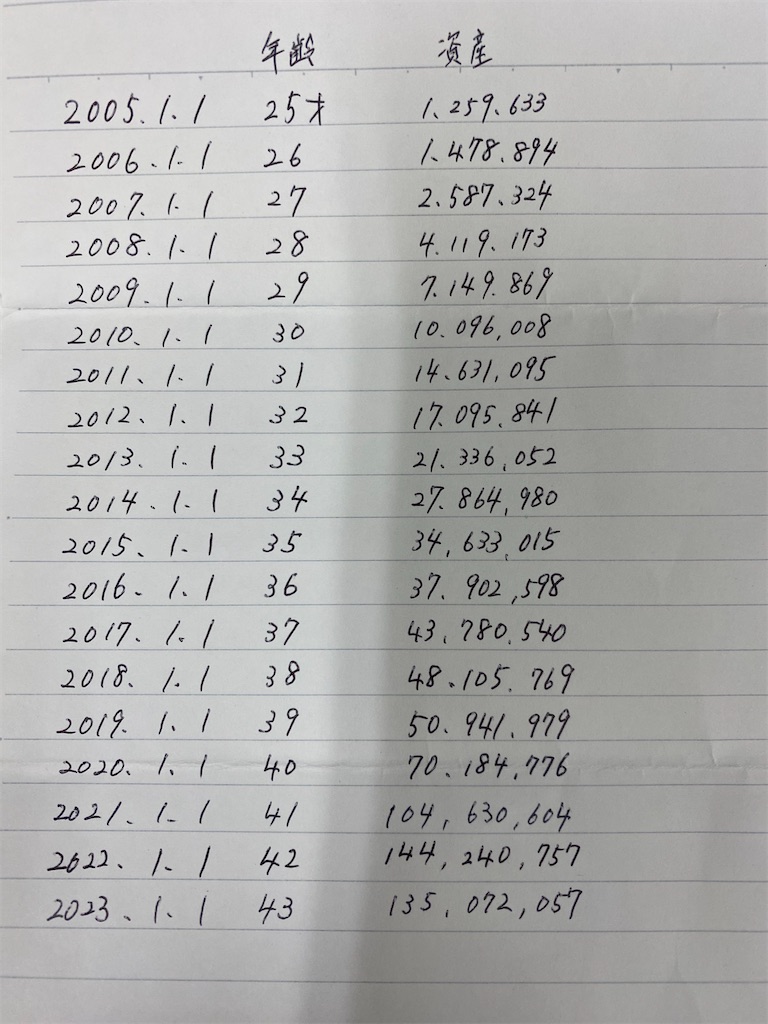 年齢 資産
2005.1.1 25才 1.259.633
2006.1.1 26 1.478.894
2007.1.1 27 2.587.324
2008.1.1 28 4.119.173
2009.1.1 29 7.149.869
2010.1.1 30 10.096,008
2011.1.1 31 14.631,095
2012.1.1 32 17.095.841
2013.1.1 33 21.336,052
2014.1.1 34 27.864,980
2015.1.1 35 34,633,015
2016.1.1 36 37.902,598
2017.1.1 37 43.780.540
2018.1.1 38 48.105.769
2019.1.1 39 50.941.979
2020.1.1 40 70.184,776
2021.1.1 41 104,630,604
2022.1.1 42 144,240,757
2023.1.1 43 135,072,057